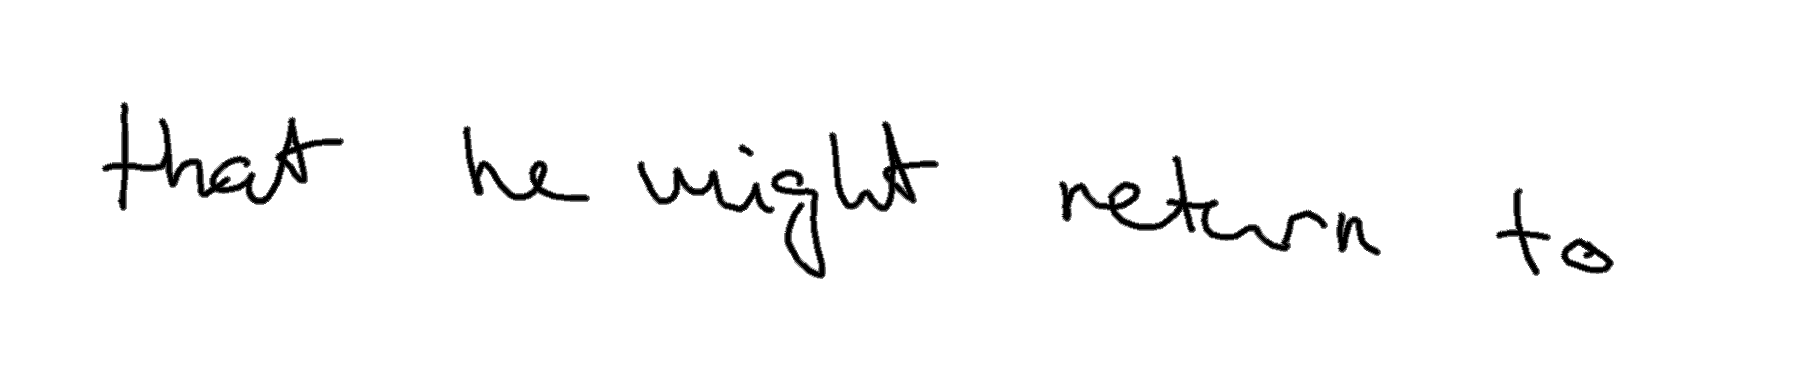 that he might return to